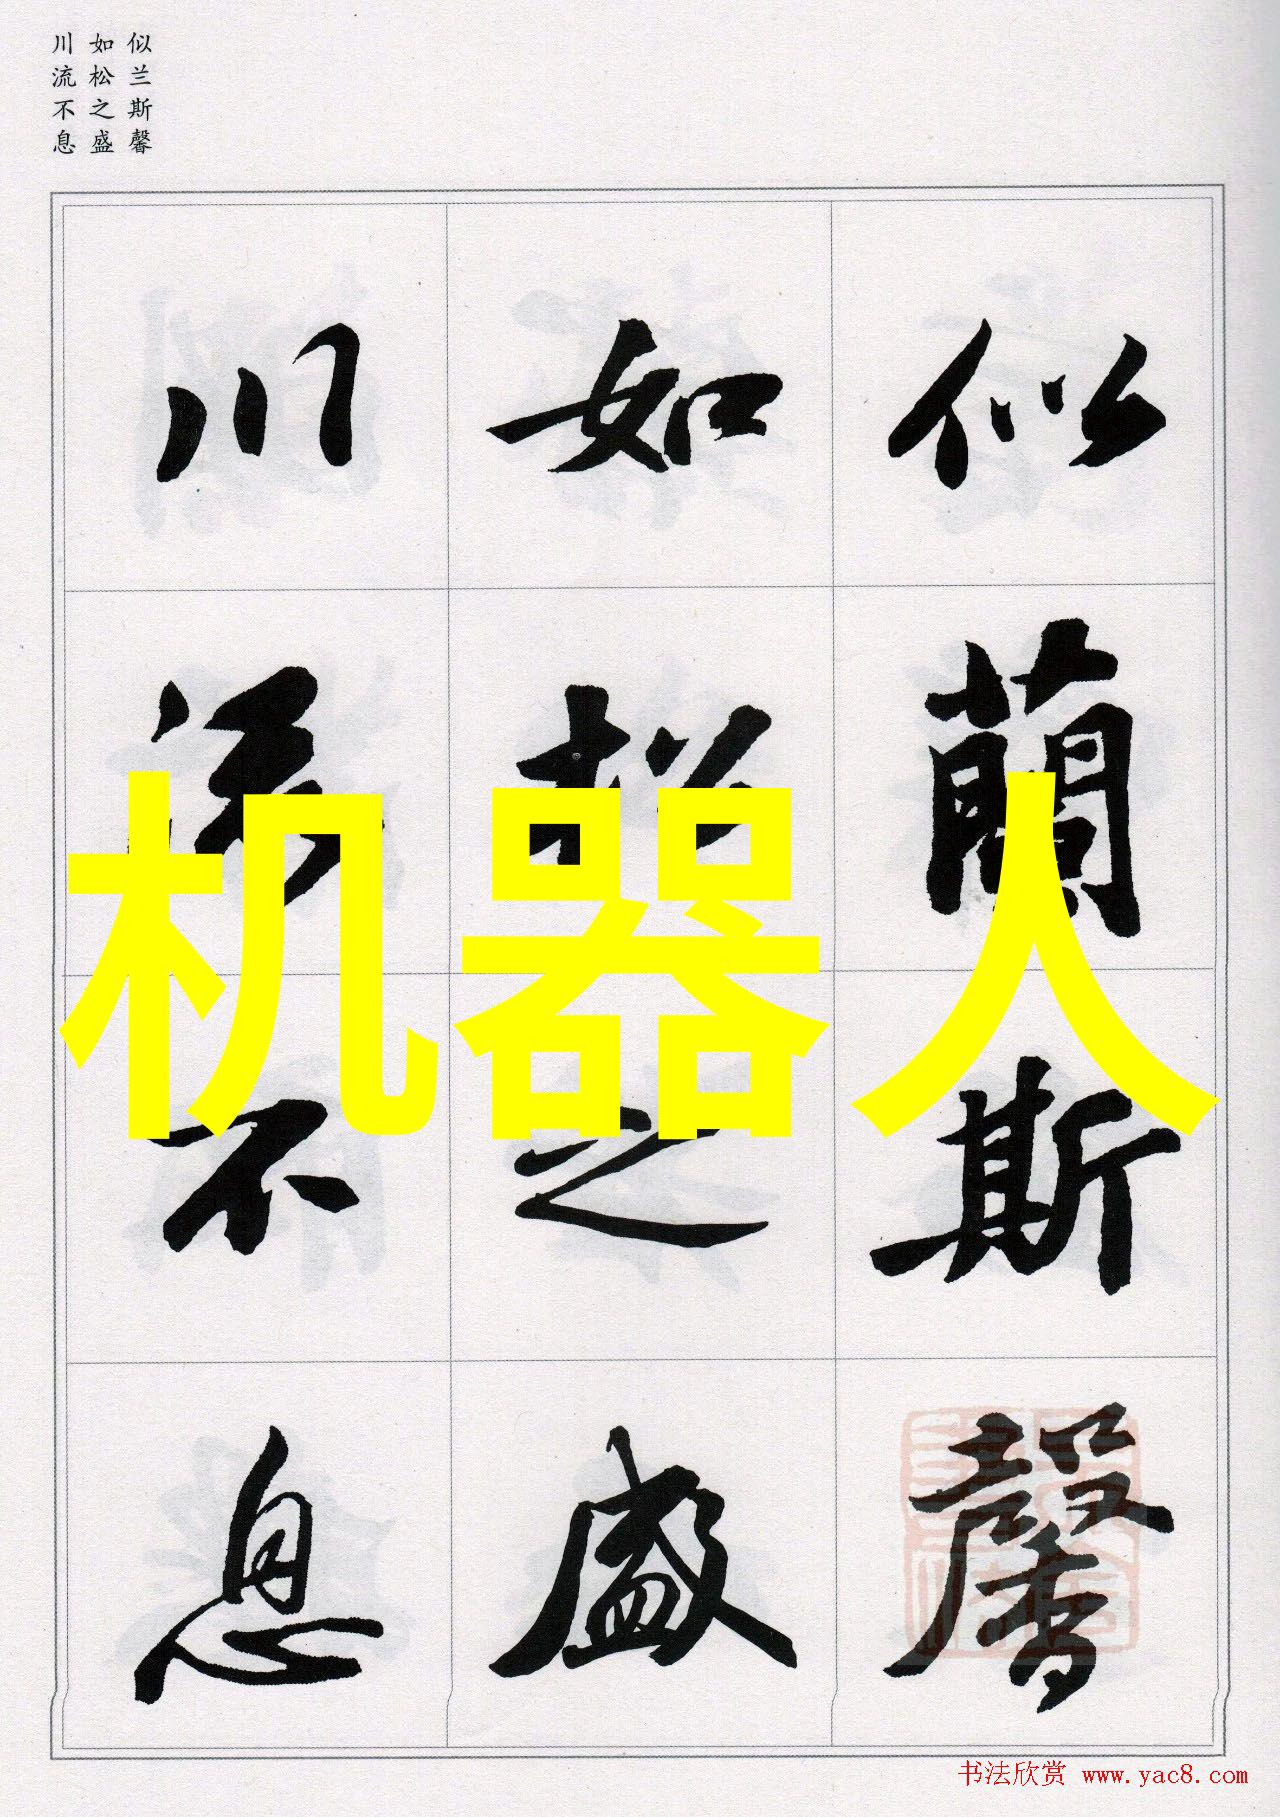 似兰斯馨
如松之盛
川流不息
似蘭斯馨
如松之盛
川流不息
机器人
书法欣赏 www.yac8.com